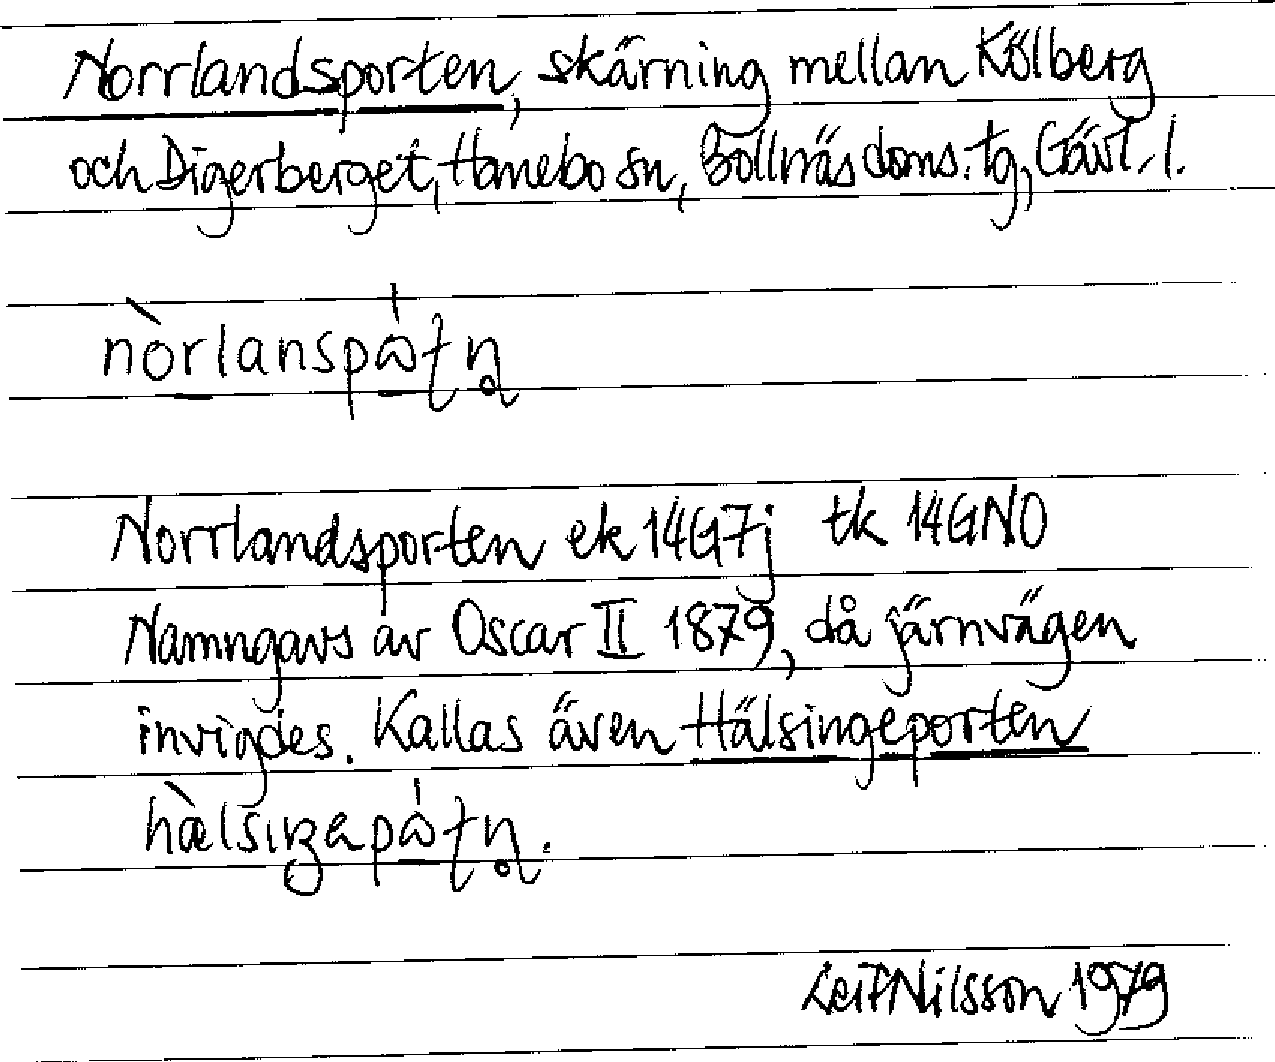 Norrlandsporten, skärning mellan Kölberg
och Digerberget, Hanebo sn, Bollnäs doms. tg, Gävl. l.
nòrlanspὼʈn̥
Norrlandsporten ek 14G7j tk 14GNO
Namngavs av Oscar II 1879, då järnvägen
invigdes. Kallas även Hälsingeporten
Leif Nilsson 1979